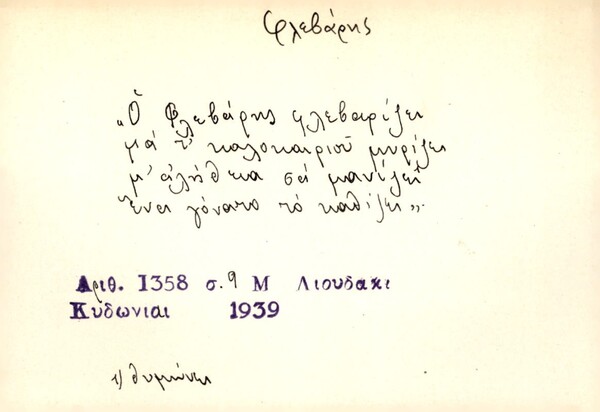 Φλεβάρης
„Ὁ Φλεβάρης φλεβαρίζει
μά τ' καλοκαιριοῦ μυρίζει
μ' ἀλήθεια σά μανίζει¹
ἕνα γόνατο τό καθίζει„
Αριθ. 1358 σ. 9 Μ Λιουδακι
Κυδωνιαι 1939
1) θυμώνει